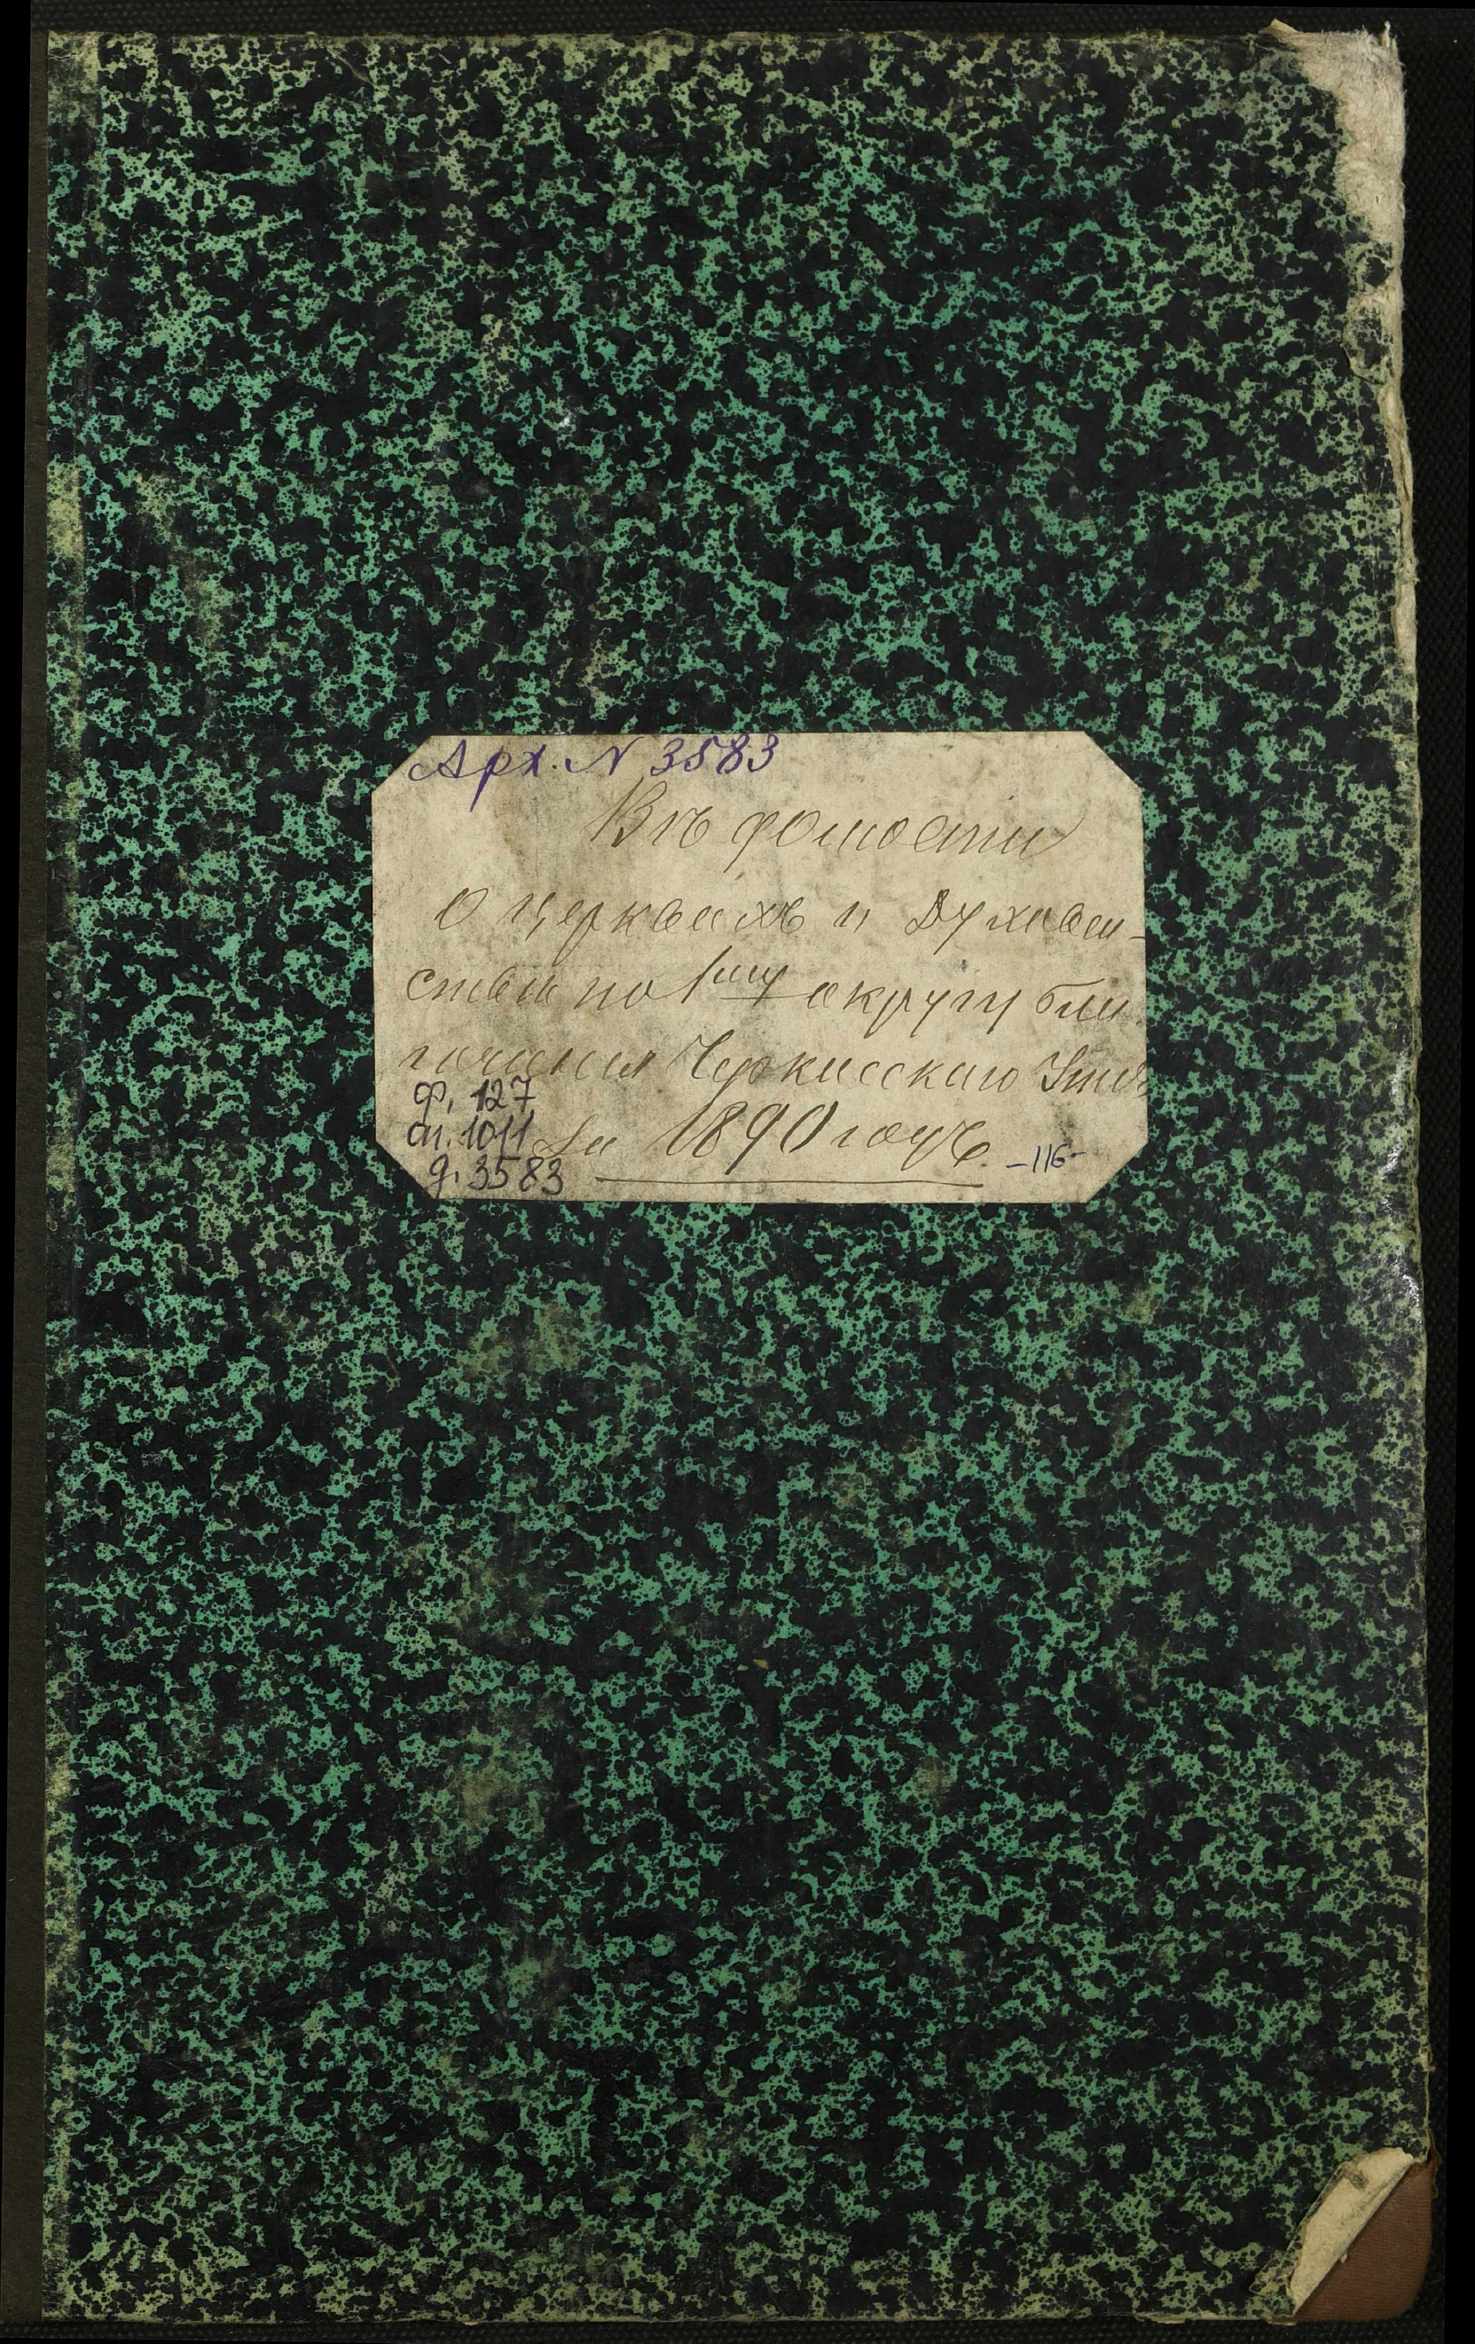 Арх. N 3583
Вѣдомости
о церквахъ и Духовен-
ствѣ по 1му округу бла-
гочинія Черкасскаго Уѣзда
За 1890 годъ.
ф. 127
оп. 1011
д. 3583
-116-